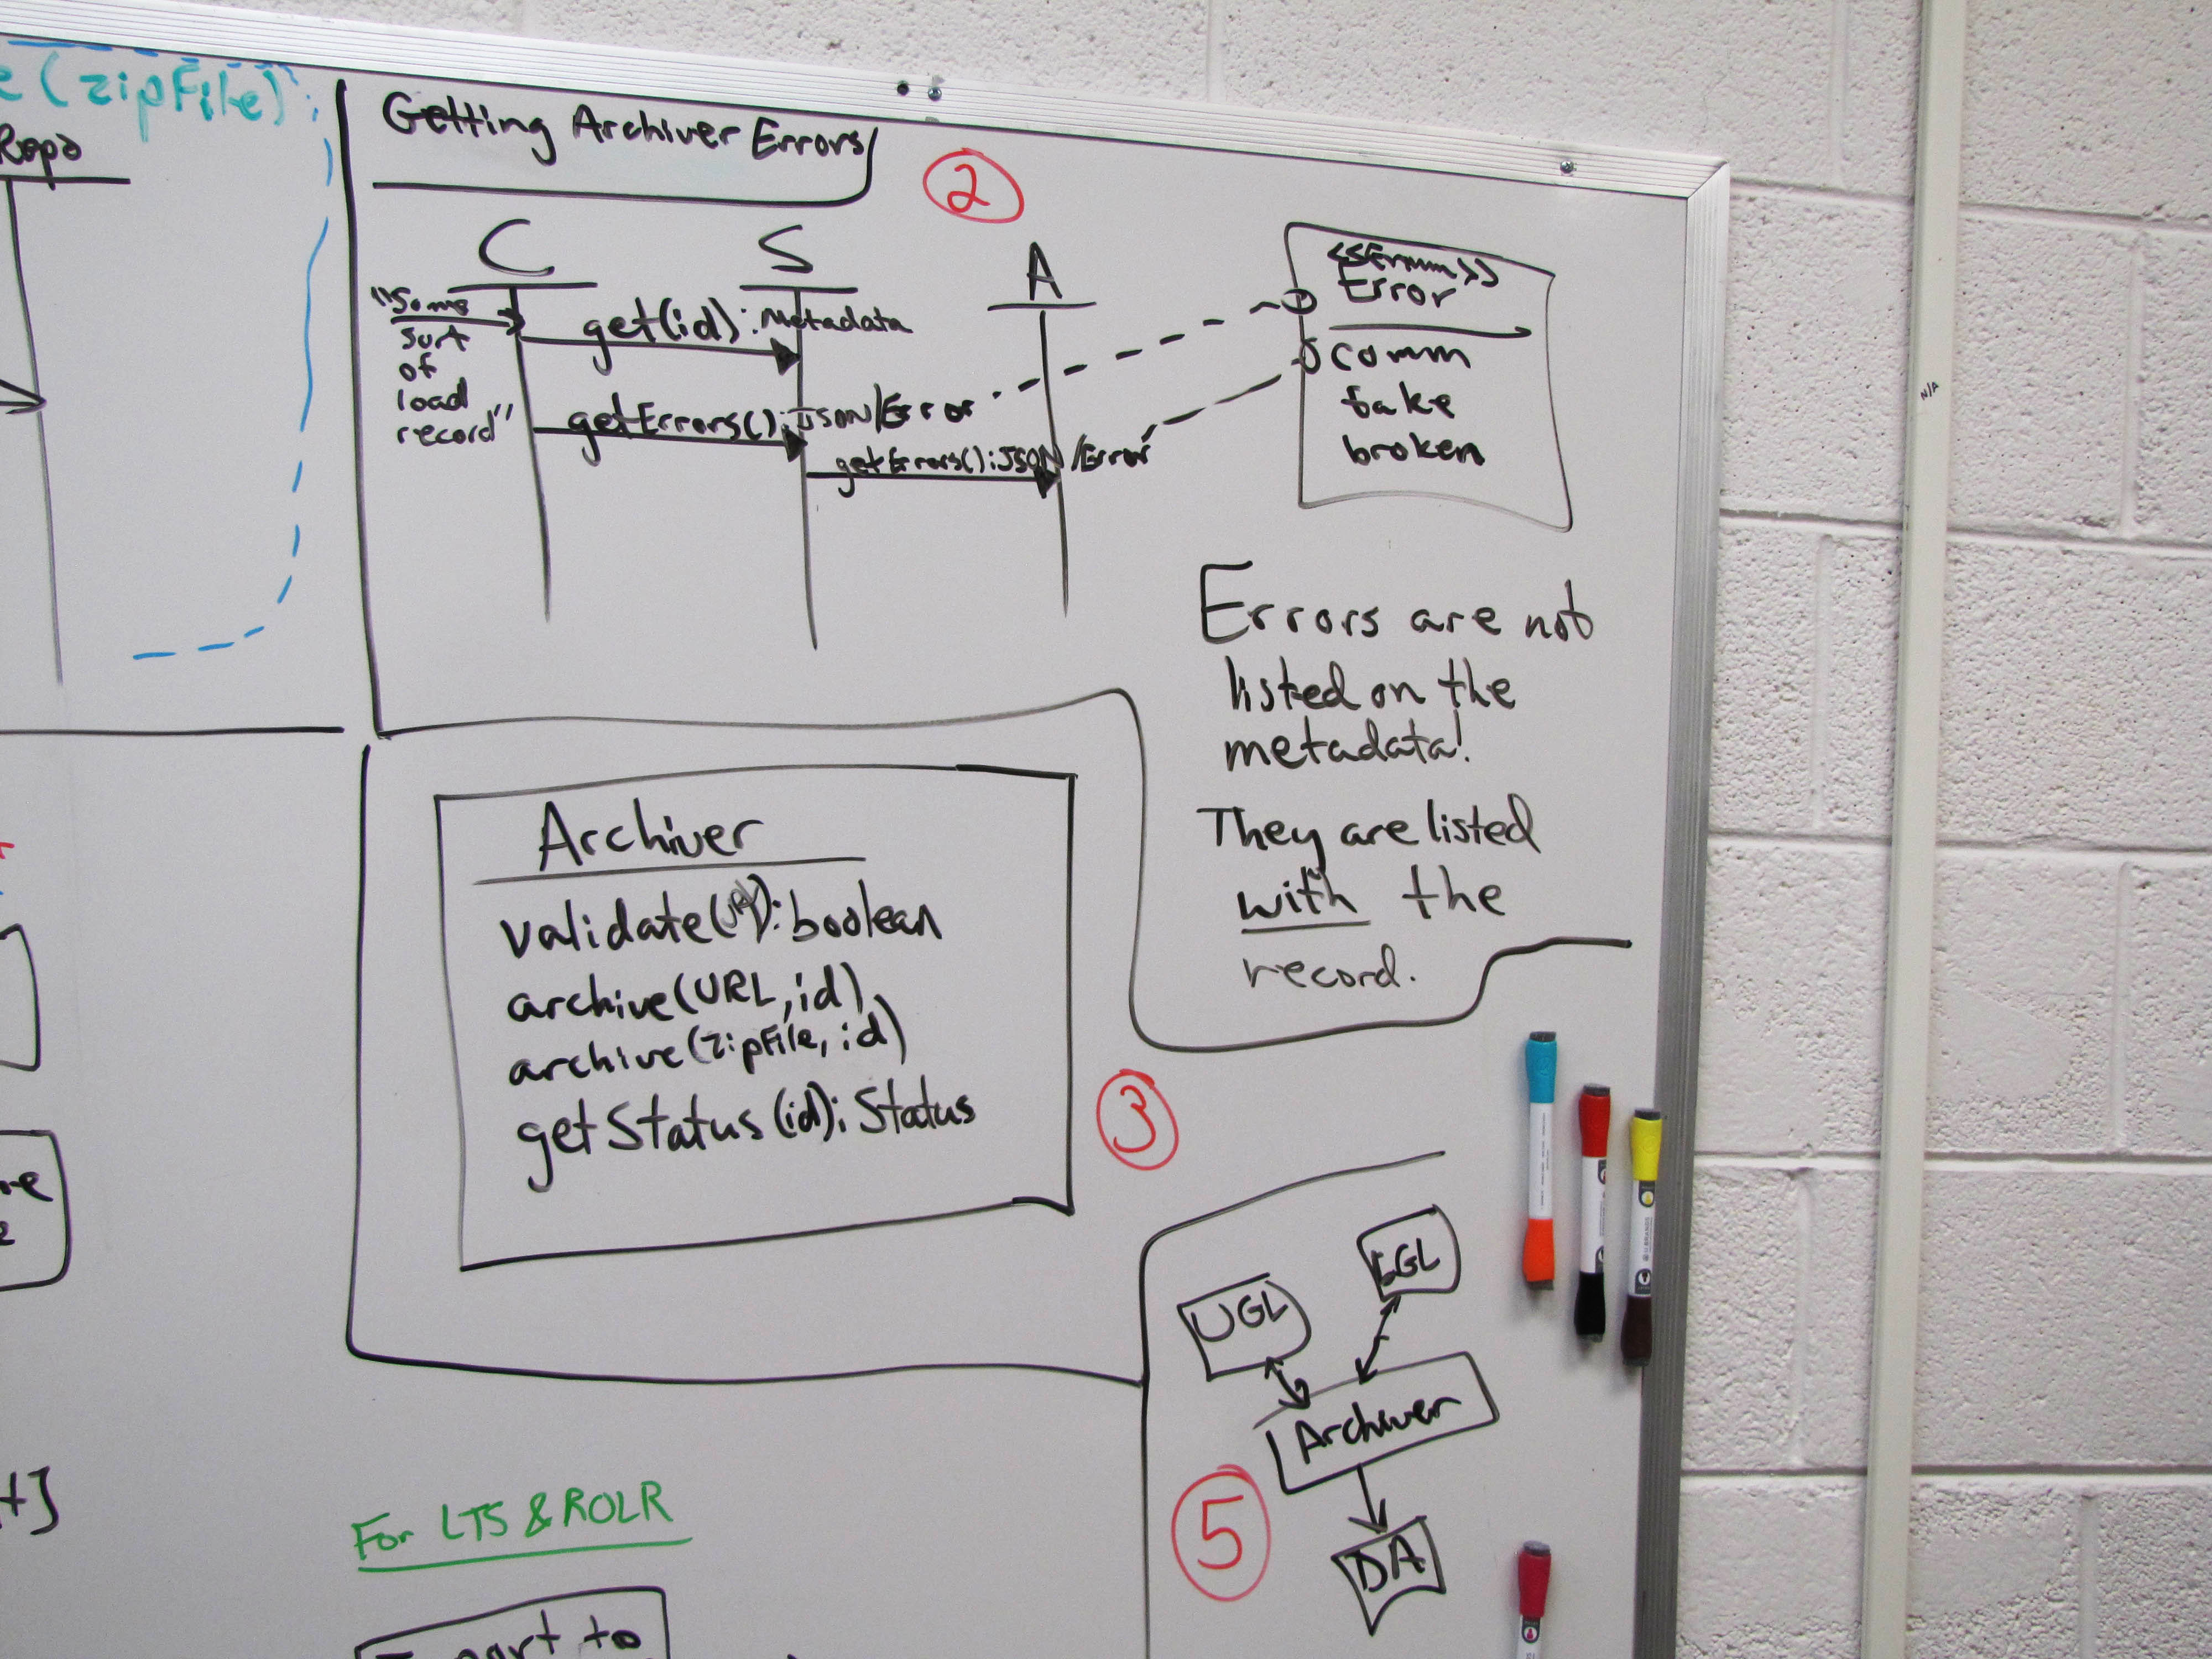 e(zipFile);
Repo
Getting Archiver Errors
2
C
S
A
"Some
sort
of
load
record"
get(id): Metadata
getErrors(): JSON/Error
getErrors(): JSON/Error
Error
comm
fake
broken
Errors are not
listed on the
metadata!
They are listed
with the
record.
Archiver
validate( ): boolean
archive(URL, id)
archive(zipFile, id)
getStatus(id): Status
3
UGL
LGL
Archiver
DA
5
re
e
t]
For LTS & ROLR
to
N/A